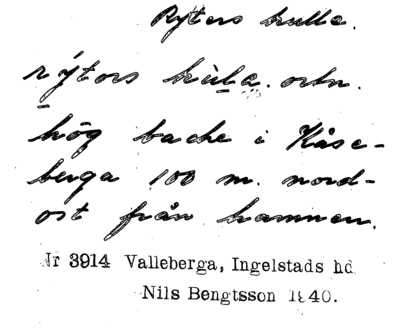 Ryters kulle.
rýtors kùla. ortn.
hög backe i Kåse-
berga 100 m. nord-
ost från hamnen.
Nr 3914 Valleberga, Ingelstads hd
Nils Bengtsson 1940.